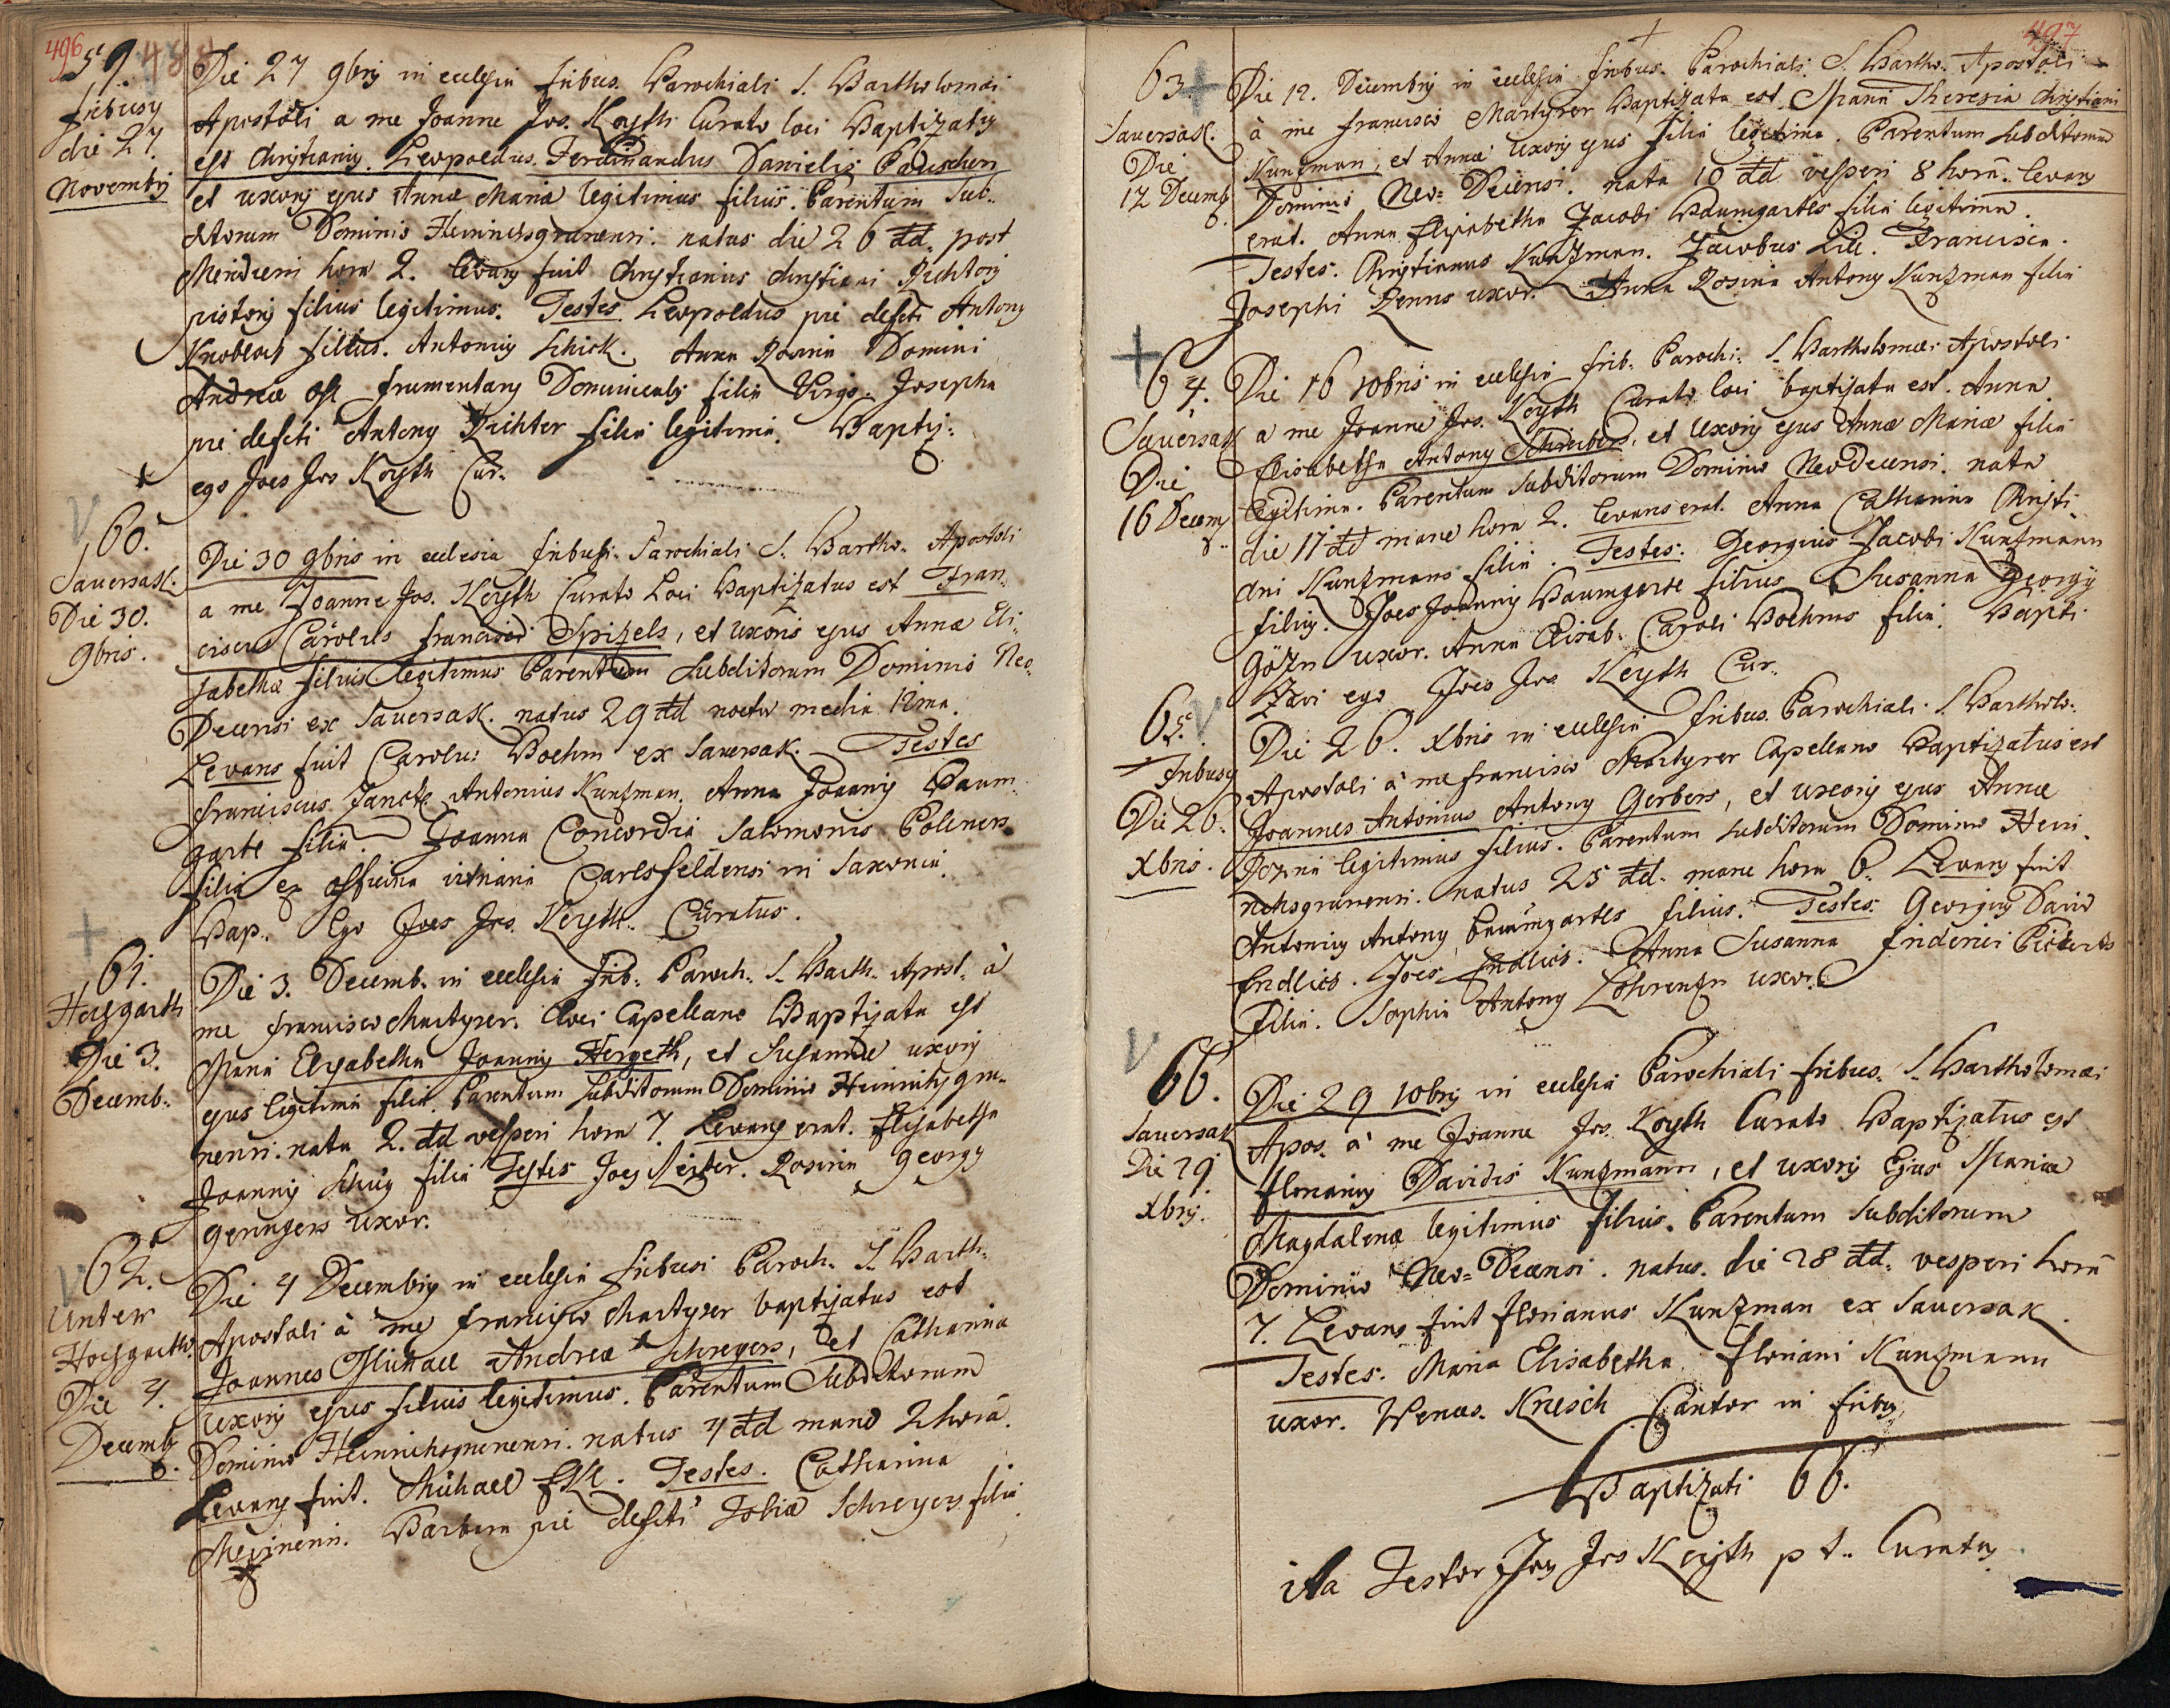 496
59.
fribusy
die 27
Novembrij
Die 27 9brij in ecclesia fribus. Parochiali S. Bartholomæi
Apostoli a me Joanne Jos. Keyth Curato loci Baptizatus
est Christianus. Leopoldus. Ferdinandus Danielis
et uxoris ejus Annæ Mariæ legitimus filius. Parentum Sub-
ditorum Dominio Heinrichsgrünensi. natus die 26 dd. post
Meridiem hora 2. levans fuit Christianus Christiani Richtery
pistoris filius legitimus. Testes Leopoldus pie defcti Antony
Knobloch filius. Antonius Schick. Anna Rosina Domini
Andreæ frumentary Dominicalis filia Virgo. Josepha
pie defcti Antony Richter filia legitima. Baptiz:
ego Joes Jos Keyth Cur.
60.
Sauersack.
Die 30.
9bris.
Die 30 9bris in ecclesia fribusi. Parochiali S. Bartho. Apostoli
a me Joanne Jos. Keyth Curato Loci Baptizatus est Fran-
ciscus Carolus francisci Spizels, et uxoris ejus Annæ Eli-
sabethæ filius legitimus Parentum Subditorum Dominio Neo
Decensi ex Sauersack. natus 29 dd noctu media 12ma.
Levans fuit Carolus Boehm ex Sauersak. Testes
franciscus Antonius Kunzman. Anna Joannis Baum-
garte filia. Joanna Concordia Salomonis Polsners
filia ex officina vitriaria Carlsfeldensi in Saxonia.
Bap. Ego Joes Jos. Keyth. Curatus.
61.
Hochgarth
Die 3.
Decemb.
Die 3. Decemb. in ecclesia frib. Paroch. S. Barth. Apost. à
me francisco Martyrer. loci Capellano Baptizata est
Maria Elysabetha Joannis Hergeth, et Susannæ uxoris
ejus legitima filia. Parentum Subditorum Dominio Heinrichsgrü-
nensi. nata 2. dd vesperi hora 7 Levans erat. Elisabetha
Joannis Schüg filia Testes Joes Reiter. Rosina Georgy
Gerungers uxor.
62.
Unter
Hochgarth.
Die 4.
Decemb.
Die 4 Decembris in ecclesia fribusi Paroch. S. Barth.
Apostoli à me francisco Martyrer baptizatus est
Joannes Michael Andreæ Schreyers, et Catharina
uxoris ejus filius legitimus. Parentum Subditorum
Dominio Heinrichsgrünensi. natus 4 dd mane 2 hora.
Levans fuit. Michael Testes. Catharina
Barbara pie defcti Tobiæ Schreyers filia
497
63
Sauersack.
Die
12 Decemb
Die 12. Decembris in ecclesia fribus. Parochiali. S. Bartho. Apostoli
à me francisco Martyrer Baptizata est Maria Theresia Christiani
Kunzman, et Annæ uxoris ejus filia legitima. Parentum Subditorum
Dominio Neo=Decensi. nata 10 dd vesperi 8 hora. Levans
erat. Anna Elysabetha Jacobi Baumgartls filia legitima.
Testes. Christianus Kunzman. Jacobus Francisca.
Josephi uxor. Anna Rosina Antony Kunzman filia
64.
Sauersak
Die
16 Decem
Die 16 10bris in ecclesia frib. Parochi. S. Bartholomæi Apostoli
a me Joanne Jos. Keyth Curato loci baptizata est. Anna
Elisabetha Antony Schreibers, et Uxoris ejus Annæ Mariæ filia
legitima. Parentum Subditorum Dominio Neodecensi. nata
die 17 dd mane hora 2. Levans erat. Anna Catharina Christi-
ani Kunzmans filia. Testes. Georgius Jacobi Kunzmann
filius. Joes Joannis Baumgarte filius Susanna Georgij
Gözn uxor. Anna Elisab. Caroli Boehms filia. Bapti
zavi ego Joes Jos. Keyth Cur.
65.
Fribusy
Die 26.
Xbris.
Die 26. Xbris in ecclesia fribus. Parochiali. S. Bartholo.
Apostoli à me francisco Martyrer Capellano Baptizatus est
Joannes Antonius Antony Gerbers, et uxoris ejus Annæ
Rozina legitimus filius. Parentum Subditorum Dominio Hein-
richsgrünensi. natus 25 dd. mane hora 6. Levans fuit
Antonius Antony Baumgartls filius. Testes. Georgius David
Endlics. Joes Endlics. Anna Susanna friderici
Filia. Sophia Antony Lohrenzn uxor.
66.
Sauersak
Die 29
Xbrij.
Die 29 10brij in ecclesia Parochiali fribus. S. Bartholomæi
Apos. à me Joanne Jos. Keyth Curato Baptizatus est
Florianus Davidis Kunzmann, et uxoris Ejus Mariæ
Magdalenæ legitimus Filius. Parentum Subditorum
Dominio Neo=Decensi. natus. die 28 dd. vesperi hora
7. Levans fuit Florianus Kunzman ex Sauersak.
Testes. Maria Elisabetha. Floriani Kunzmann
uxor. Wences. Kresch Cantor in fribus
Baptizati 66.
ita Testor Joes Jos Keyth p t. Curatus